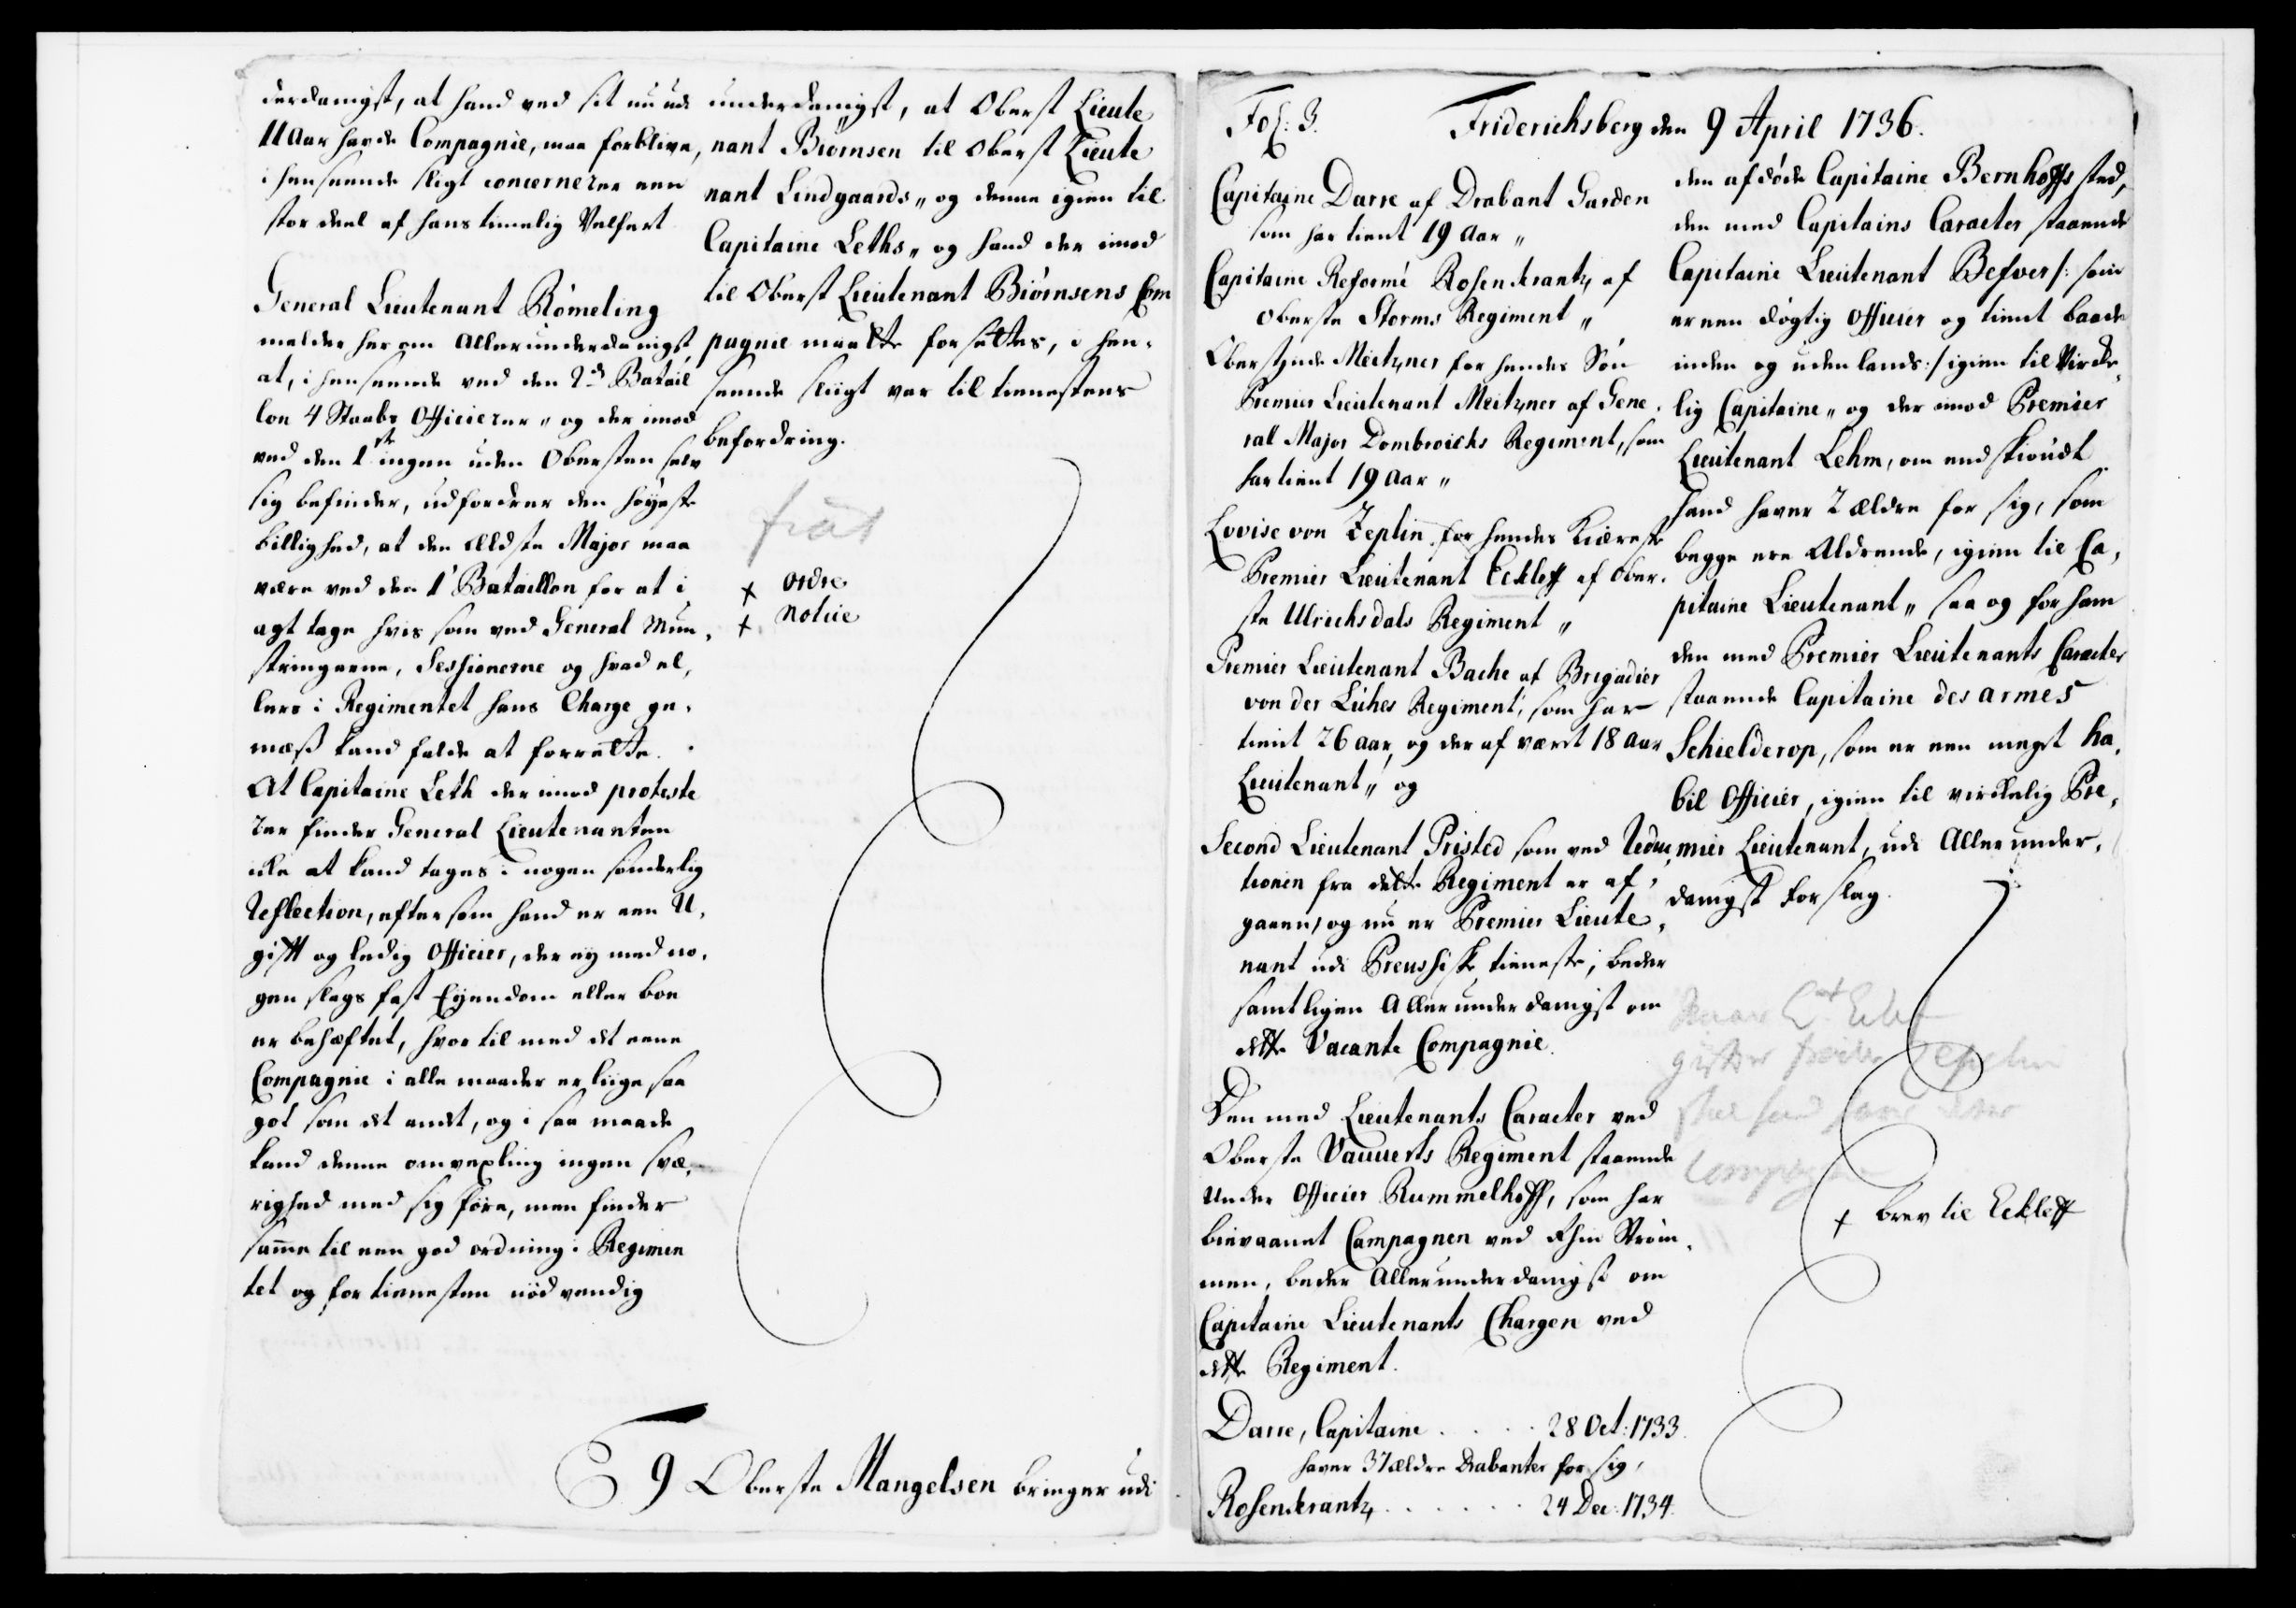 derdanigst, at hand ved sit nu udi
11 Aar havde Compagnie, maa forblive,
i henseende sligt concernerer een
stor deel af hans timelig Velfært
General Lieutenant Römeling
melder her om Allerunderdanigst,
at, i henseende ved den 2den Batail
lon 4 Staabs Officierer" og der imod
ved den 1ste ingen uden Obersten selv
sig befinder, udfordrer den höyeste
billighed, at den Ældste Major maa
være ved den 1te Bataillon for at i
agt tage hvis som ved General Mun,
stringerne, Sessionerne og hvad el,
lers i Regimentet hans Charge ge,
mæs kand falde at forrætte.
At Capitaine Leth der imod proteste
rer finder General Lieutenanten
icke at kand tages i nogen sönderlig
Reflection, eftersom hand er een U,
gift og ledig Officier, der ey med no,
gen slags fast Eyendom eller boe
er behæftet, hvortil med det eene
Compagnie i alle maader er liige saa
got som det andet, og i saa maade
kand denne omvexling ingen svæ,
righed med sig före, men finder
samme til een god ordning i Regimen
tet og for tienesten nödvendig
underdanigst, at Oberst Lieute
nant Biörnsen til Oberst Lieute
nant Lindgaards" og denne igien til
Capitaine Leths" og hand der imod
til Oberst Lieutenant Biörnsens Com
pagnie maatte forsættes, i hen,
seende sligt var til tienestens
befordring.
fiat
+ ordre
+ Notice
9 Oberste Mangelsen bringer udi
Fol: 3.
Friderichsberg den 9 April 1736.
Capitaine Darre af Drabant Garden
som har tient 19 Aar"
Capitaine Reformé Rosenkrantz af
Oberste Storms Regiment"
Oberstinde Meitzner for hendes Sön
Premier Lieutenant Meitzner af Gene,
ral Major Dombroichs Regiment, som
har tient 19 Aar"
Lovise von Zeplin for hendes Kiæreste
Premier Lieutenant Eckleff af Ober,
ste Ulrichsdals Regiment"
Premier Lieutenant Bache af Brigadier
von der Lühes Regiment, som har
tient 26 aar, og der af været 18 Aar
Lieutenant" og
Second Lieutenant Pristed som ved Reduc,
tionen fra dette Regiment er af,
gaaen, og nu er Premier Lieute,
nant udi Preussisk tieneste, beder
samtligen Allerunderdanigst om
dette Vacante Compagnie.
Den med Lieutenants Caracter ved
Oberste Vauverts Regiment staaende
Under Officier Rummelhoff, som har
bievaanet Campagnen ved Rhin Ström,
men, beder Allerunderdanigst om
Capitaine Lieutenants Chargen ved
dette Regiment.
Darre, Capitaine . . . . 28 Oct: 1733.
haver 37 ældre Drabanter for sig,
Rosenkrantz . . . . . . 24 Dec: 1734.
den afdöde Capitaine Bernhoffs sted,
den med Capitains Caracter staaende
Capitaine Lieutenant Besver /: som
er een dögtig Officier og tient baade
inden og uden lands :/ igien til Virke,
lig Capitaine" og der imod Premier
Lieutenant Lehm, om endskiöndt
hand haver 2 ældre for sig, som
begge ere Aldrende, igien til Ca,
pitaine Lieutenant" saa og for ham
den med Premier Lieutenants Caracter
staaende Capitaine des armes
Schielderop, som er een meget ha,
bil Officier, igien til virkelig Pre,
mier Lieutenant, udi Allerunder,
danigst forslag.
Naar Lt Eclef
gifter Zeplin
skal hand have dette
Compagnie
+ brev til Eckleff